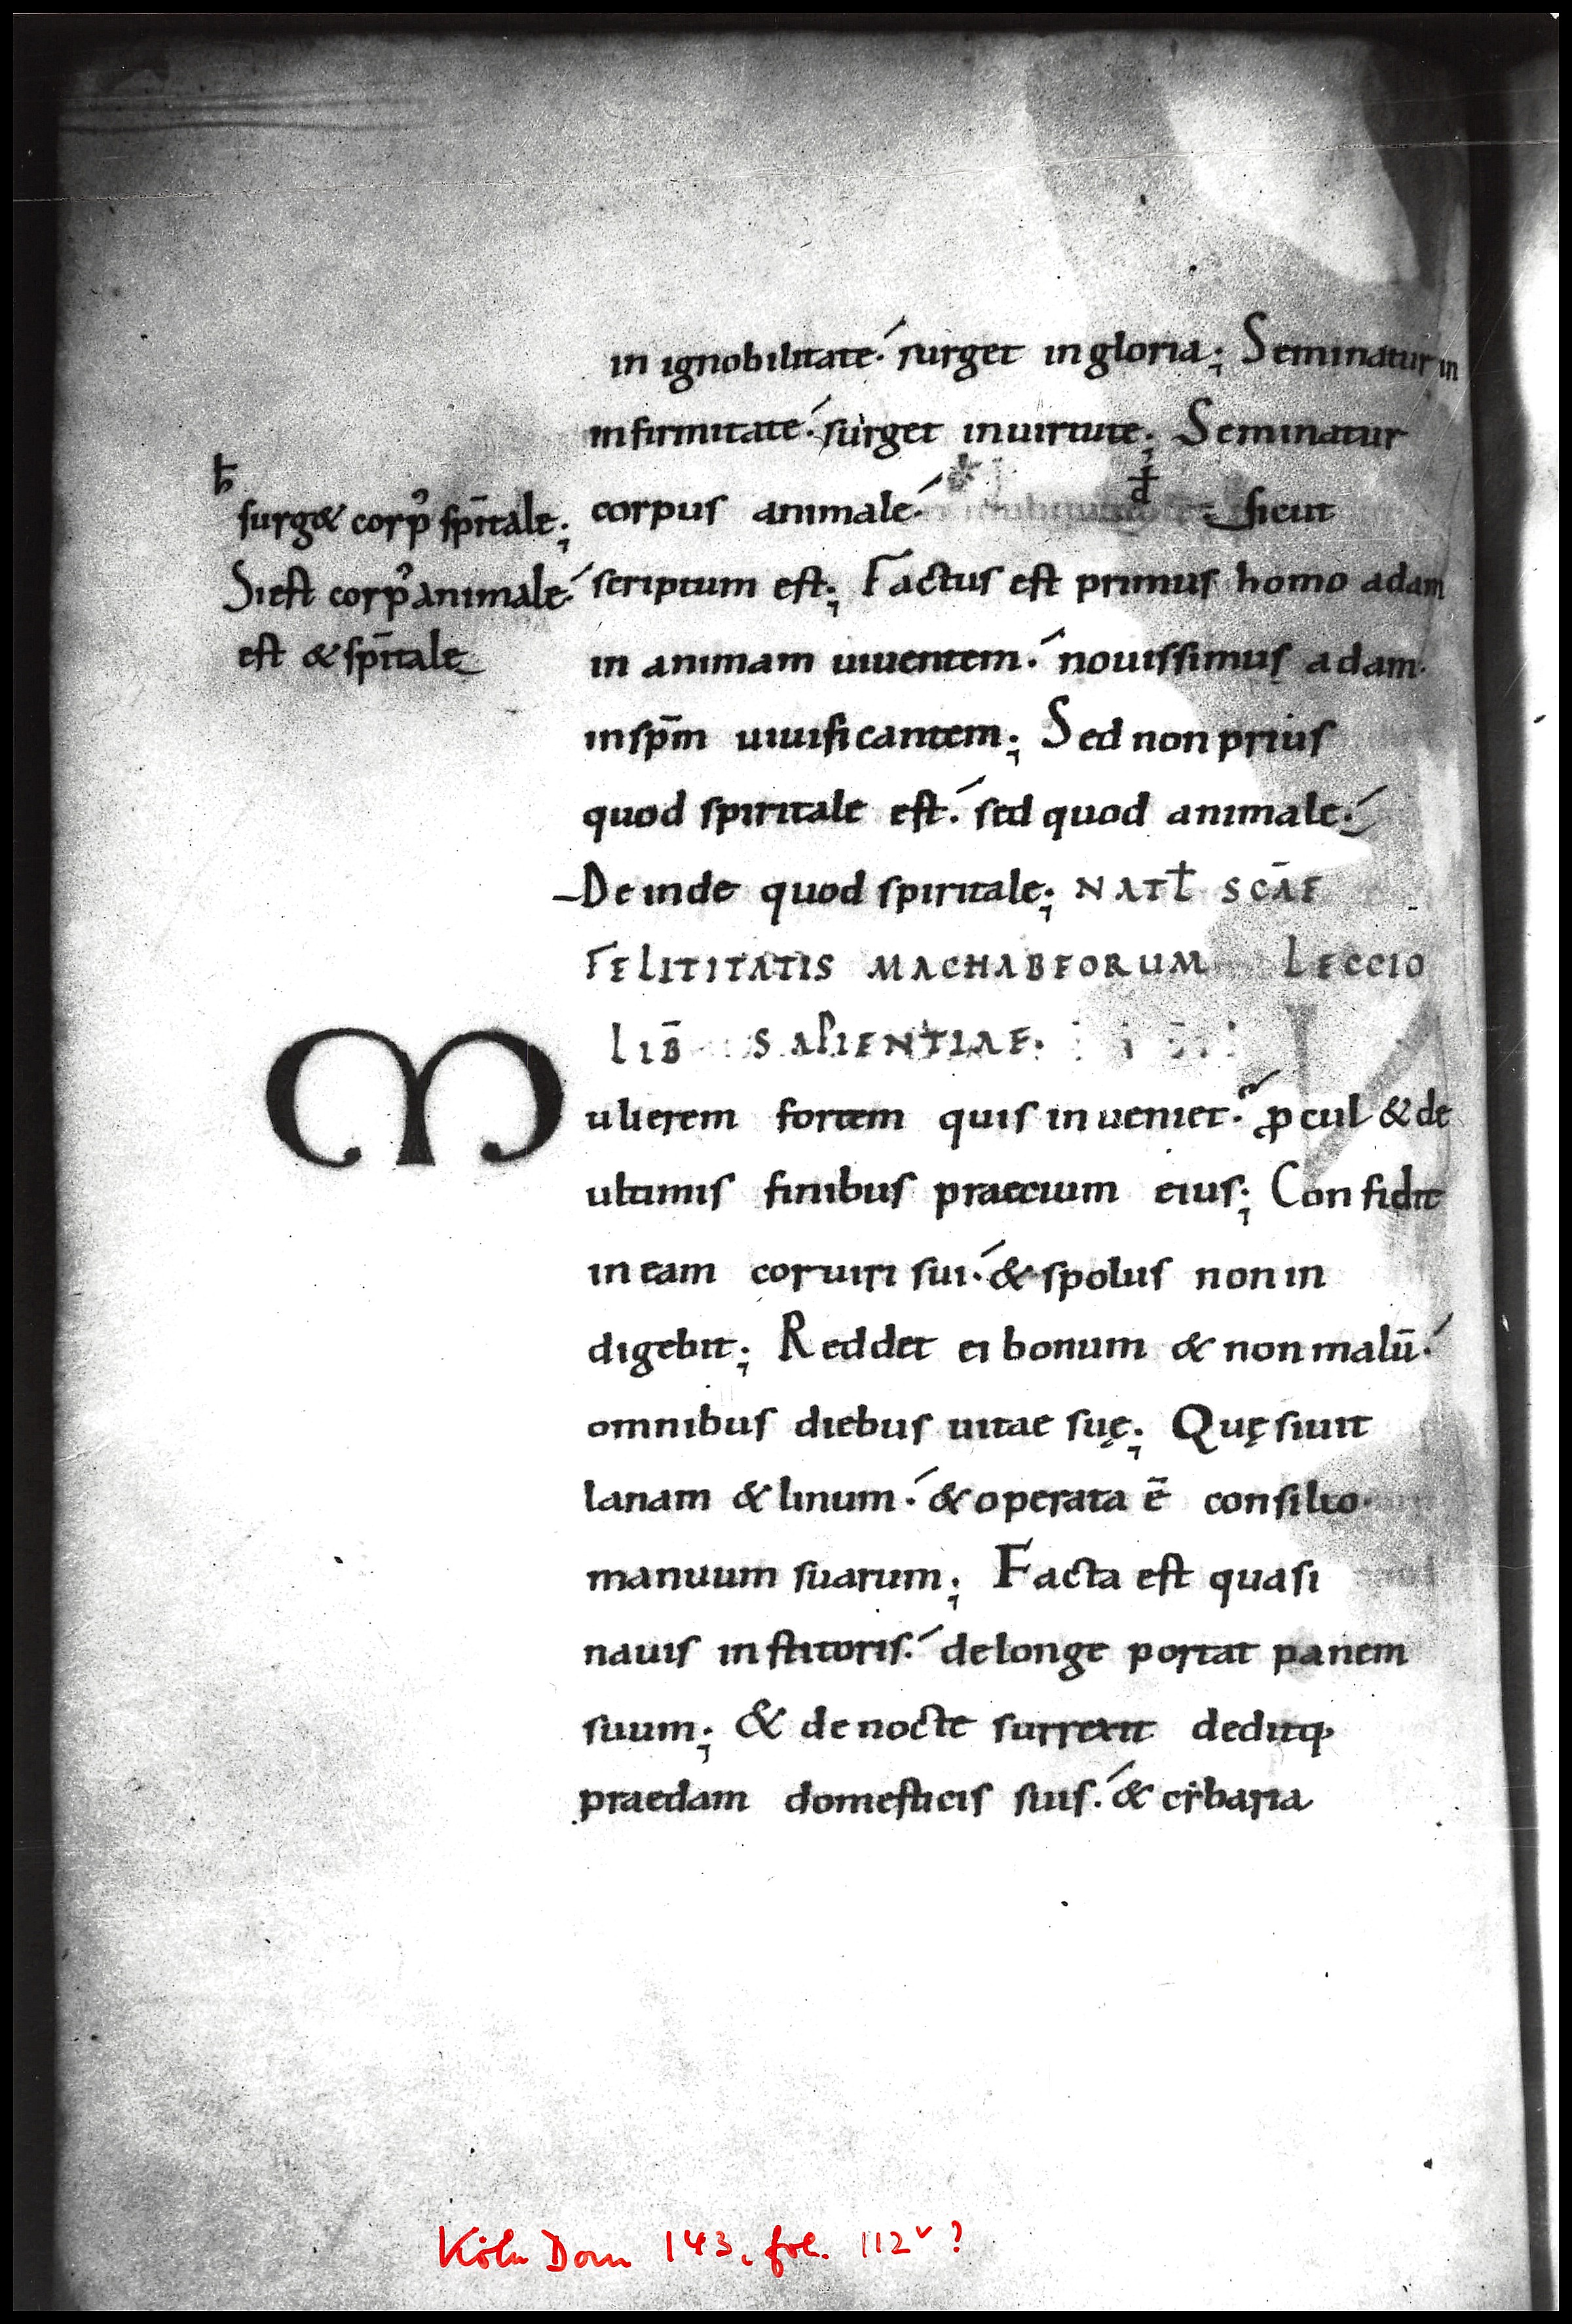 in ignobilitate. surget in gloria; Seminatur in
infirmitate. surget in uirtute; Seminatur
corpus animale. sicut
ħ
surg& corp᾽ sp̄itale;
Si est corp᾽ animale.
est & sp̄itale
scriptum est; Factus est primus homo adam
in animam uiuentem. nouissimus adam.
in sp̄m uiuificantem; Sed non prius
quod spiritale est. sed quod animale.
Deinde quod spiritale; NATƚ SCĀE
FELITITATIS MACHABEORUM LECCIO
LIB̄ SAPIENTIAE.
Mulierem fortem quis inueniet. ꝓcul & de
ultimis finibus praecium eius; Confidit
in eam cor uiri sui. & spoliis non in
digebit; Reddet ei bonum & non malū.
omnibus diebus uitae suę; Quęsiuit
lanam & linum. & operata ē consilio
manuum suarum; Facta est quasi
nauis institoris. de longe portat panem
suum; & de nocte surrexit deditq;
praedam domesticis suis. & cibaria
Köln Dom 143, fol. 112v?